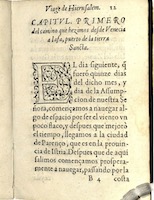 Viage de Hierusalem. 12
CAPITVL. PRIMERO
del camino que hezimos desde Venecia
a Iafa, puerto de la tierra
Sancta.
EL dia siguiente, q̃
fue a quinze dias
del dicho mes, y
dia de la Assump-
cion de nuestra
señora, començamos a nauegar al
go de espacio por ser el viento vn
poco flaco, y despues, que mejorò
tiempo, llegamos a la ciudad
de Parenço, que es en la prouincia
de Istria. Despues que de aqui
salimos començamos prospera-
mente a nauegar, passando por la
B 4 costa